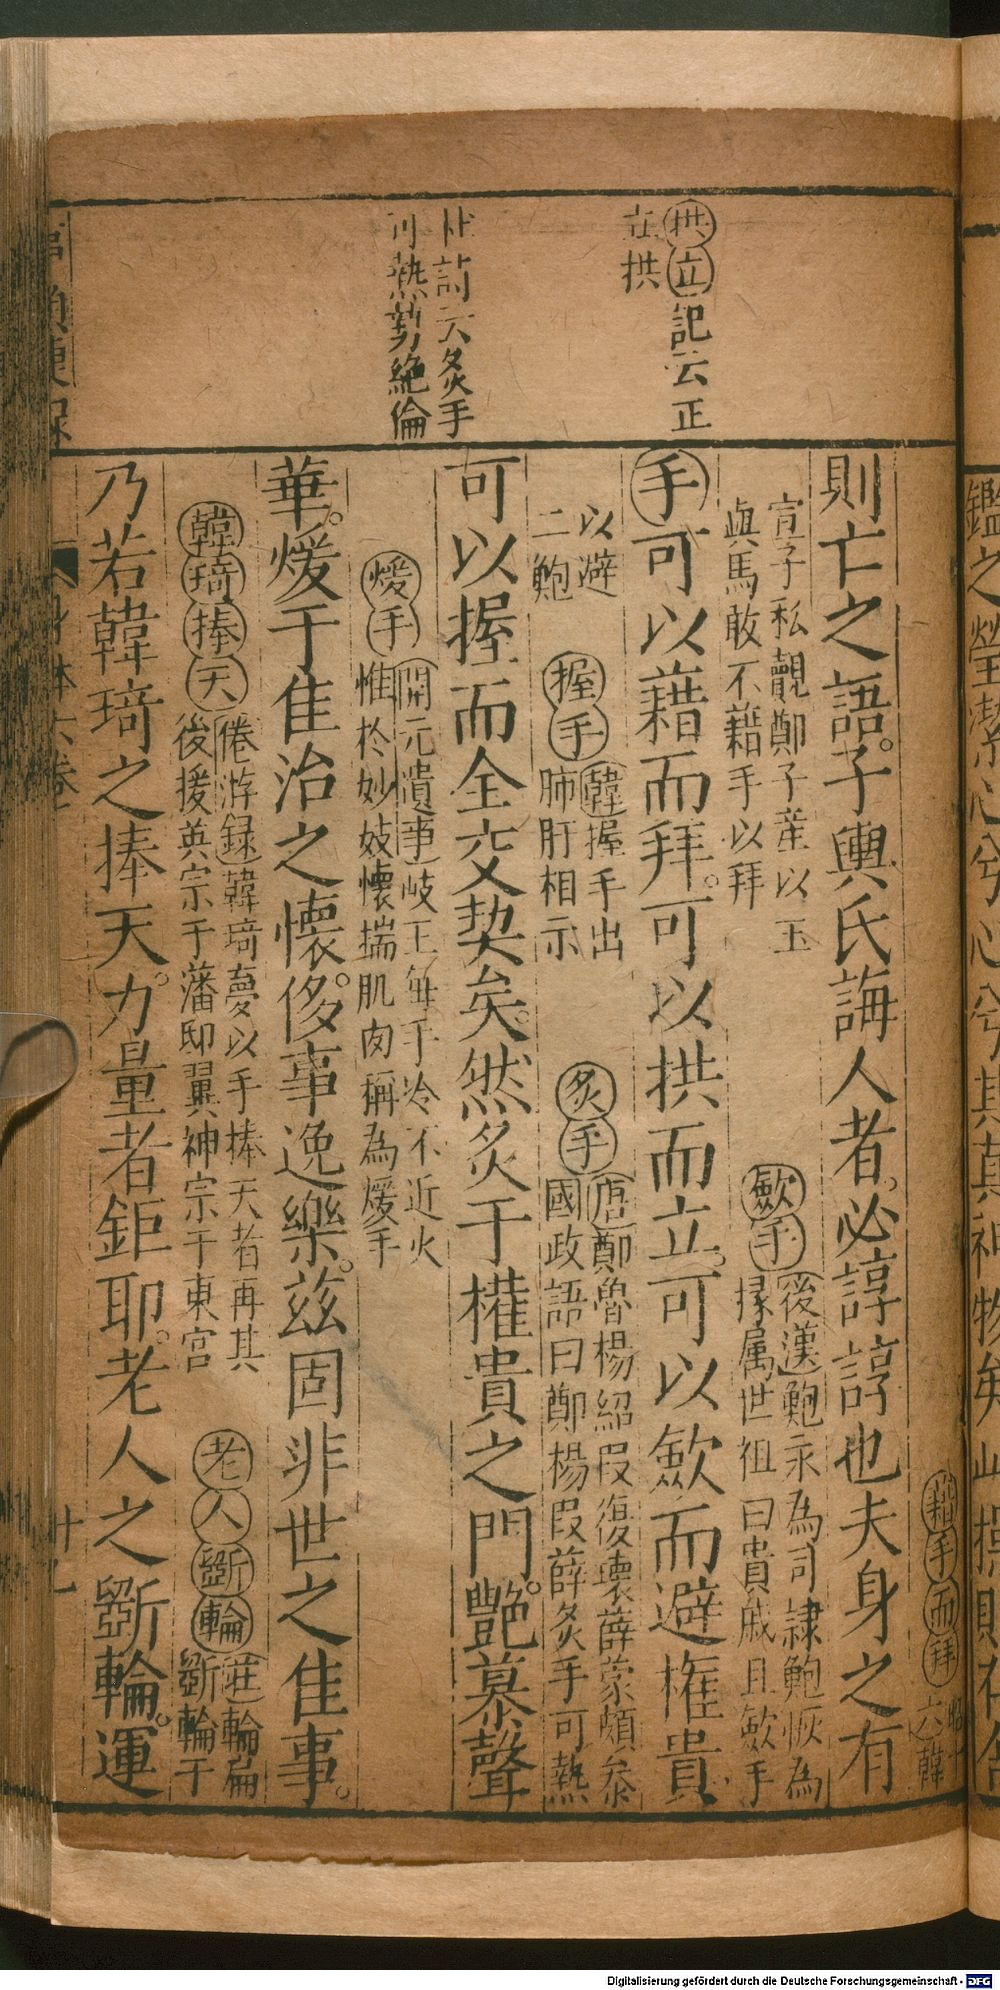 拱立記云正
立拱
杜詩云炙手
可熱勢絶倫
藉手而拜
昭
六韓
則亡之語子輿氏誨人者必諄諄也夫身之有
宣子私覿鄭子産以玉
與馬敢不藉手以拜
歛手
後漢鮑永為司隷鮑恢為
掾属世祖曰貴戚且歛手
手可以藉而拜可以拱而立可以歛而避權貴
以避
二鮑
握手
韓握手出
肺肝相示
炙手
唐鄭魯楊紹叚復壊薛蒙頗叅
國政語曰鄭楊叚薛炙手可熱
可以握而全交契矣然炙于權貴之門艶慕聲
煖手
開元遺事岐王毎手冷不近火
惟於妙妓懷揣肌肉稱為煖手
華煖于隹冶之懷侈事逸樂兹固非世之隹事
韓琦捧天
倦游録韓琦夢以手捧天者再其
後援英宗于藩邸翼神宗于東宫
老人斵輪
莊輪扁
斵輪于
乃若韓琦之捧天力量者鉅耶老人之斵輪運
Digitalisierung gefördert durch die Deutsche Forschungsgemeinschaft - DFG